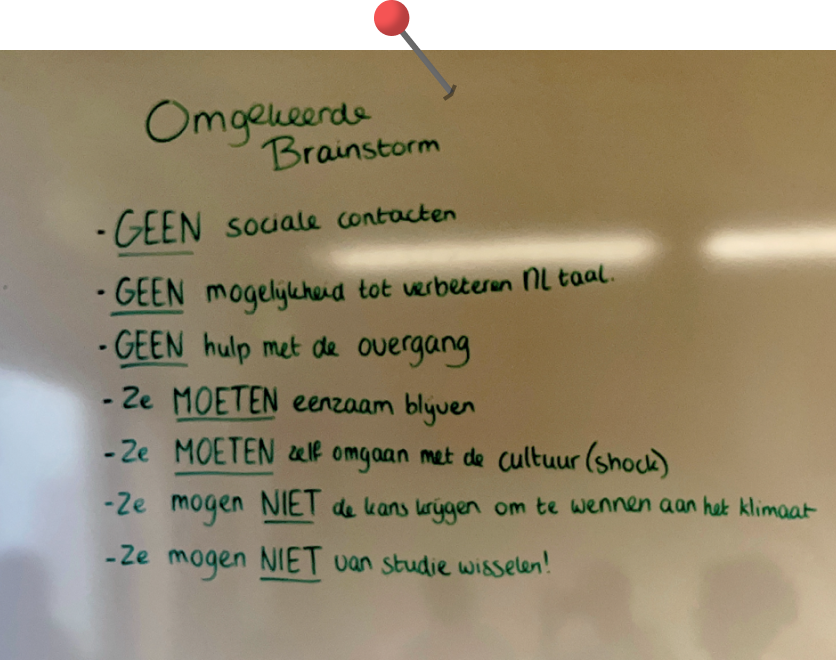 Omgekeerde
Brainstorm
- GEEN sociale contacten
- GEEN mogelijkheid tot verbeteren Nl taal.
- GEEN hulp met de overgang
- Ze MOETEN eenzaam blijven
- Ze MOETEN zelf omgaan met de cultuur (shock)
- Ze mogen NIET de kans krijgen om te wennen aan het klimaat
- Ze mogen NIET van studie wisselen!